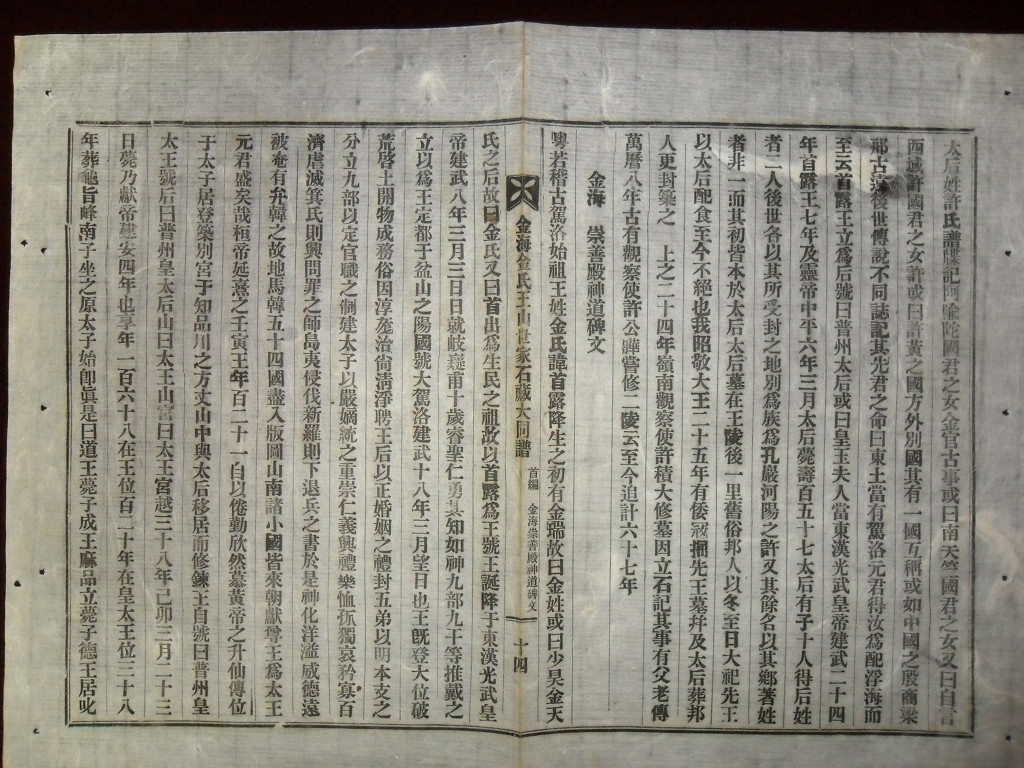 太后姓許氏譜牒記阿隃陀國君之女金官古事或曰南天竺國君之女又曰自言
西域許國君之女許或曰許黃之國方外別國其有一國互稱或如中國之殷商梁
邢古蓮後世傳說不同誌記其先君之命曰東土當有駕洛元君得汝爲配浮海而
至云首露王立爲后號曰普州太后或曰皇玉夫人當東漢光武皇帝建武二十四
年首露王七年及靈帝中平六年三月太后薨壽百五十七太后有子十人得后姓
者二人後世各以其所受封之地別爲族爲孔巖河陽之許又其餘名以其鄕著姓
者非一而其初皆本於太后太后墓在王陵後一里舊俗邦人以冬至日大祀先王
以太后配食至今不絕也我昭敬大王二十五年有倭寇掘先王墓幷及太后葬邦
人更封築之 上之二十四年嶺南觀察使許積大修墓因立石記其事有父老傳
萬曆八年古有觀察使許公曄嘗修二陵云至今追計六十七年
金海 崇善殿神道碑文
粵若稽古駕洛始祖王姓金氏諱首露降生之初有金瑞故曰金姓或曰少昊金天
金海金氏王山世家石藏大同譜 首編 金海崇善殿神道碑文 十四
氏之后故曰金氏又曰首出爲生民之祖故以首露爲王號王誕降于東漢光武皇
帝建武八年三月三日日就岐嶷甫十歲睿聖仁勇其知如神九部九干等推戴之
立以爲王定都于盆山之陽國號大駕洛建武十八年三月望日也王旣登大位破
荒啓土開物成務俗因淳厖治尙淸淨聘王后以正婚姻之禮封五弟以明本支之
分立九部以定官職之制建太子以嚴嫡統之重崇仁義興禮樂恤孤獨哀矜寡百
濟虐滅箕氏則興問罪之師島夷侵伐新羅則下退兵之書於是神化洋溢威德遠
被奄有弁韓之故地馬韓五十四國盡入版圖山南諸小國皆來朝獻尊王爲太王
元君盛矣哉桓帝延熹之壬寅王年百二十一自以倦勤欣然慕黃帝之升仙傳位
于太子居登築別宮于知品川之方丈山中與太后移居而修鍊王自號曰普州皇
太王號后曰普州皇太后山曰太王山宮曰太王宮越三十八年己卯三月二十三
日薨乃獻帝建安四年也享年一百六十八在王位百二十年在皇太王位三十八
年葬龜旨峰南子坐之原太子始卽眞是曰道王薨子成王麻品立薨子德王居叱